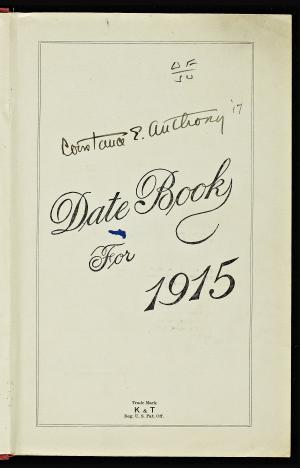 Constance E. Anthony '17
Date Book
For
1915
Trade Mark
K & T
Reg. U. S. Pat. Off.